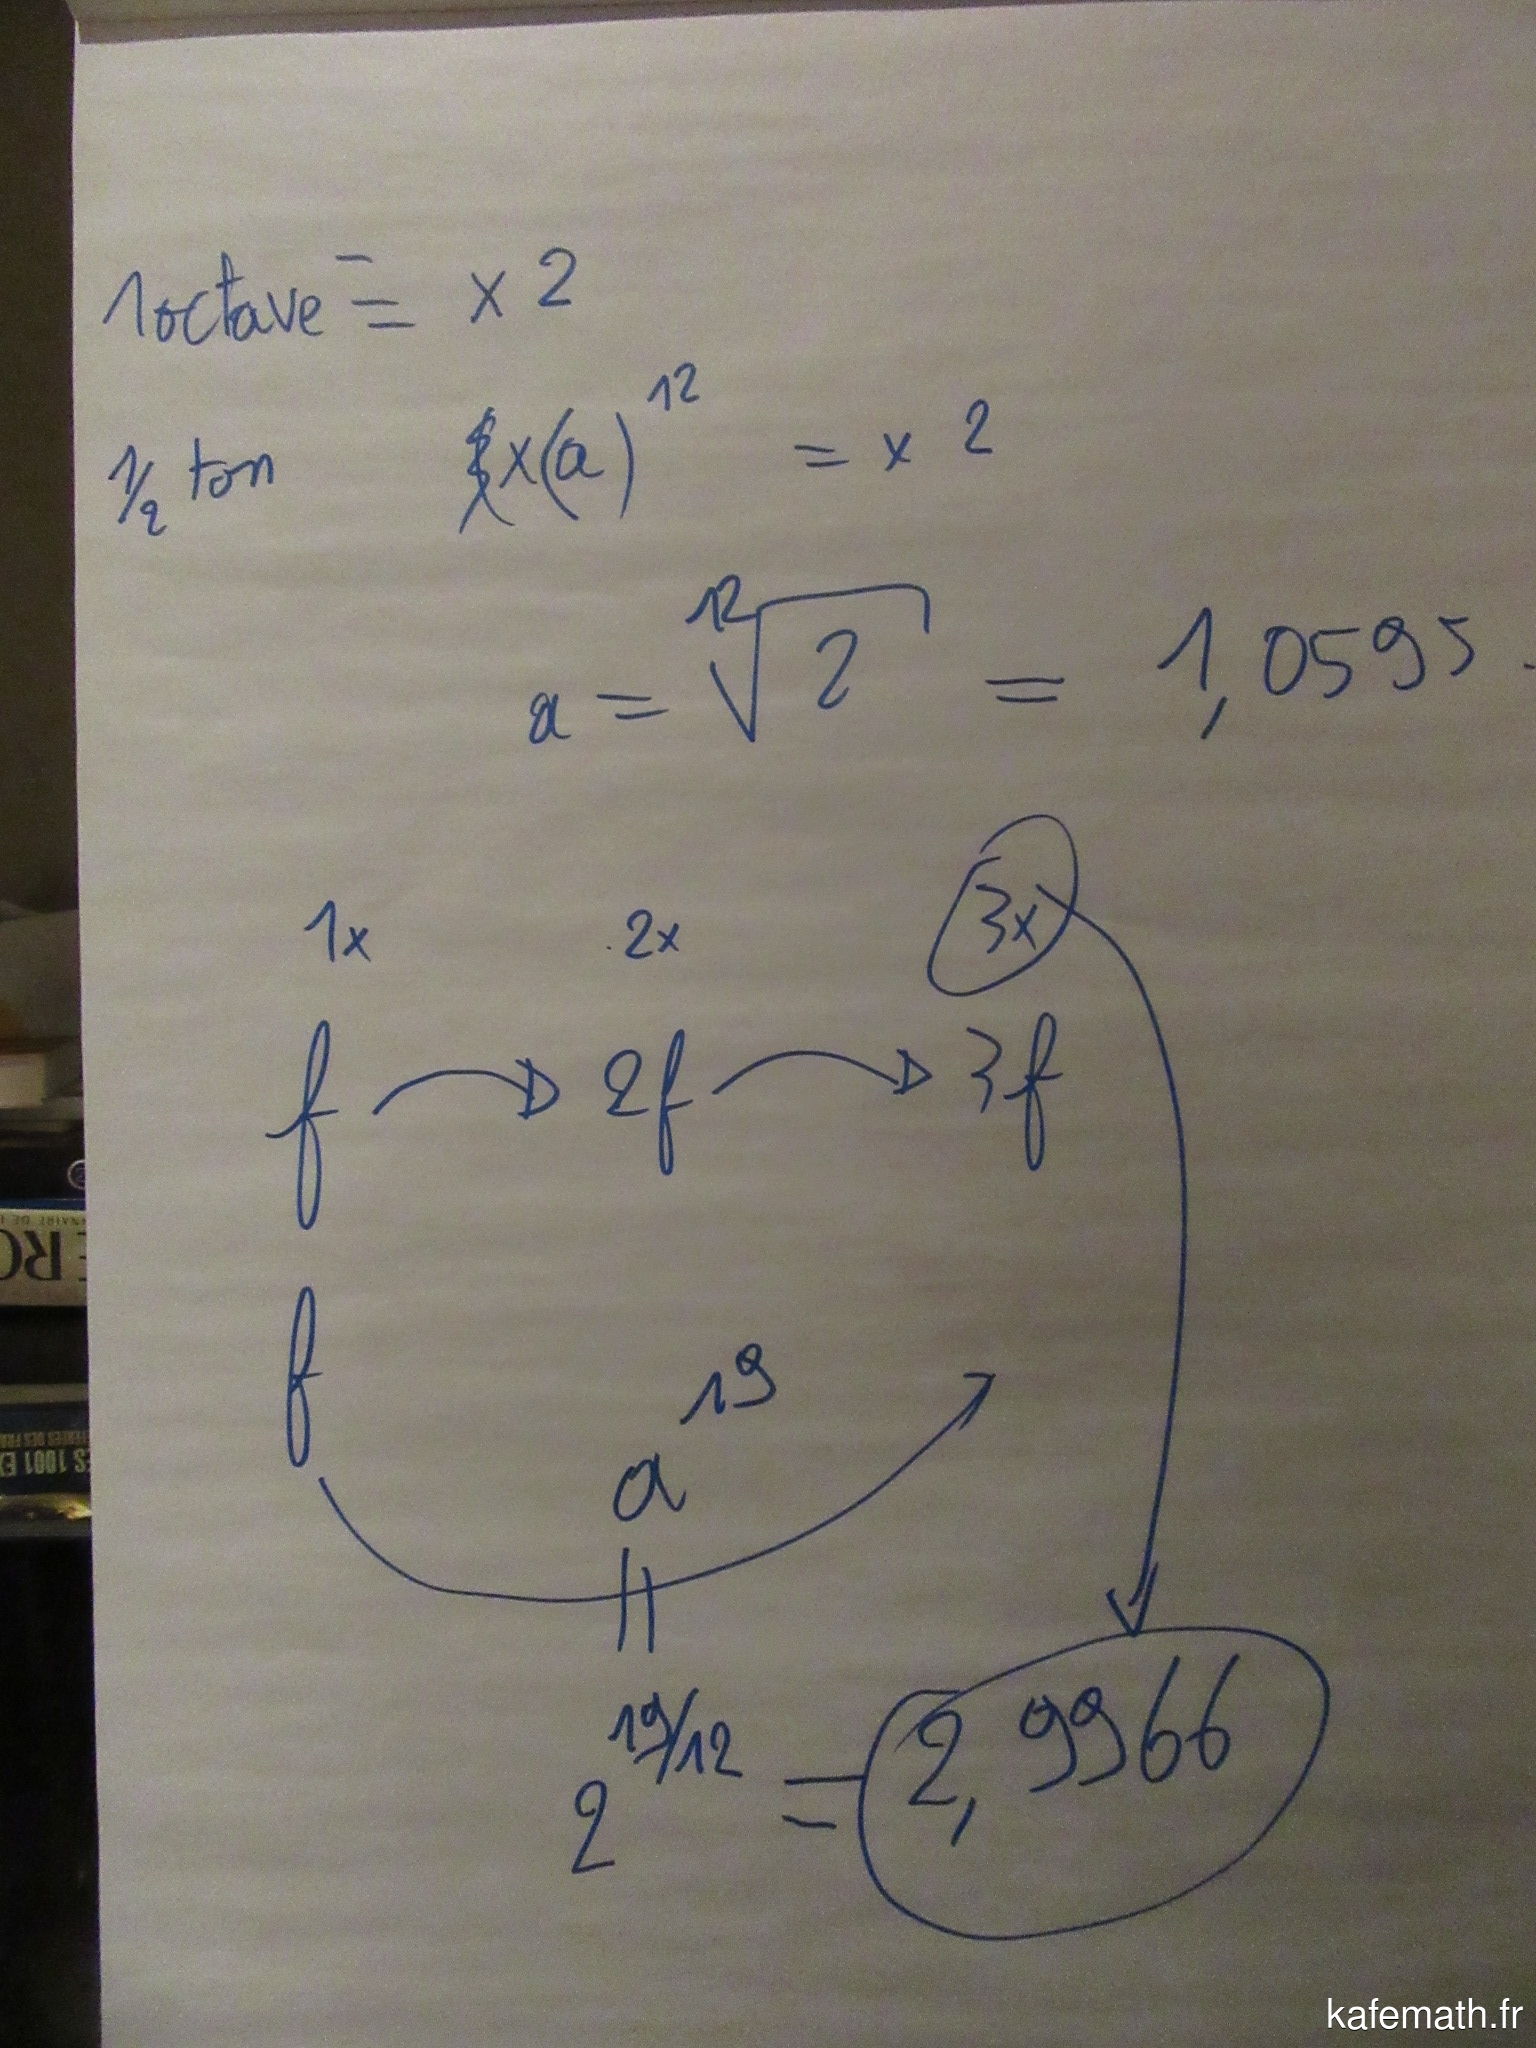 1 octave = × 2
1/2 ton ×(a)^12 = × 2
a = ¹²√2 = 1,0595
1x 2x 3x
f → 2f → 3f
f
a^19
||
2^19/12 = 2,9966
ERO
ES 1001 EX
kafemath.fr